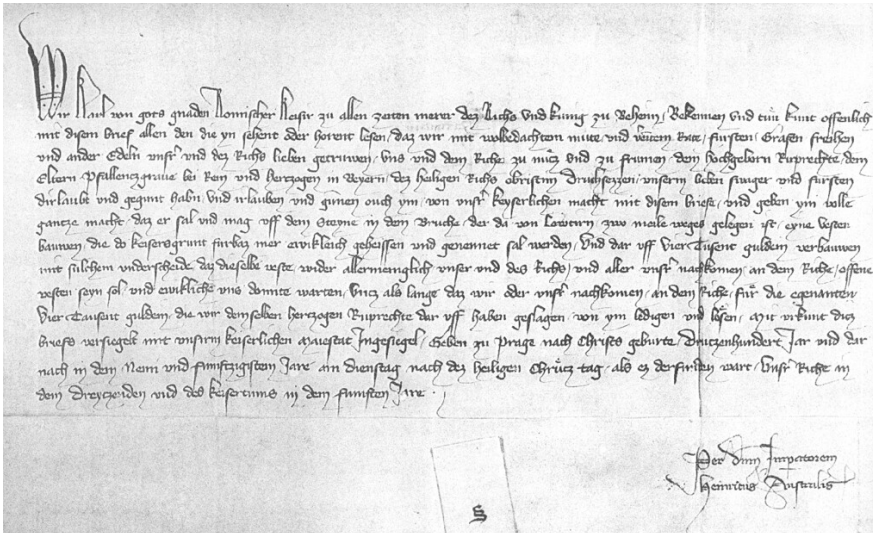 Wir Karl von gots gnaden Romischer Keisir zu allen zeiten merer dez Richs und kung zu Beheim, Bekennen und tun kunt offenlich
mit disem brief allen den die yn sehent oder horent lesen, daz wir mit wolbedachtem mute und Rate, fursten, Grafen freyhen
und ander Edeln unsr und dez Richs lieben getruwen, Uns und dem Riche zu nucz und zu frumen, dem hochgeborn Ruprechte dem
Eltern Pfallenczgrave bei Rein und herczogen in Beyern, dez heiligen Richs obristem Druchsezzen, unserm lieben swager und fursten
dirlaubt und gegunt habn, und irlauben und gunnen ouch ym, von unsr keyserlichen macht mit disem briefe, und geben ym volle
gantze macht, daz er sal und mag uff dem Steyne in dem Bruche, der da von Lowtern zwo meile weges gelegen ist, eyne vesten
bauwen, die do keisersgrunt furbaz mer ewikleich geheissen und genennet sal werden, Und dar uff Vier Tusent guldein verbauwen
mit sulchem underscheide daz dieselbe veste, wider allermenglich unser und des Richs, und aller unsr nachkomen, an dem Riche, offene
vesten seyn sol, und ewikliche uns domite warten, Uncz als lange daz wir oder unsr nachkomen, an dem Riche, fur die egenanten
Vier Tausent guldein, die wir demselben herczogen Ruprechte dar uff haben geslagen, von ym ledigen und losen, Mit urkunt diez
briefs versigelt mit unsirm keiserlichen Maiestat Ingesigel, Geben zu Prage nach Christs geburte, Druczenhundert Jar und dar
nach in dem Newn und funftzigistem Jare, am dienstag nach dez heiligen Chrucz tag, als ez derfunden wart, Unsr Riche in
dem dreyczenden und des keisertums in dem funften Jare.
Per dnm Impatorem
Heinricus Australis
S